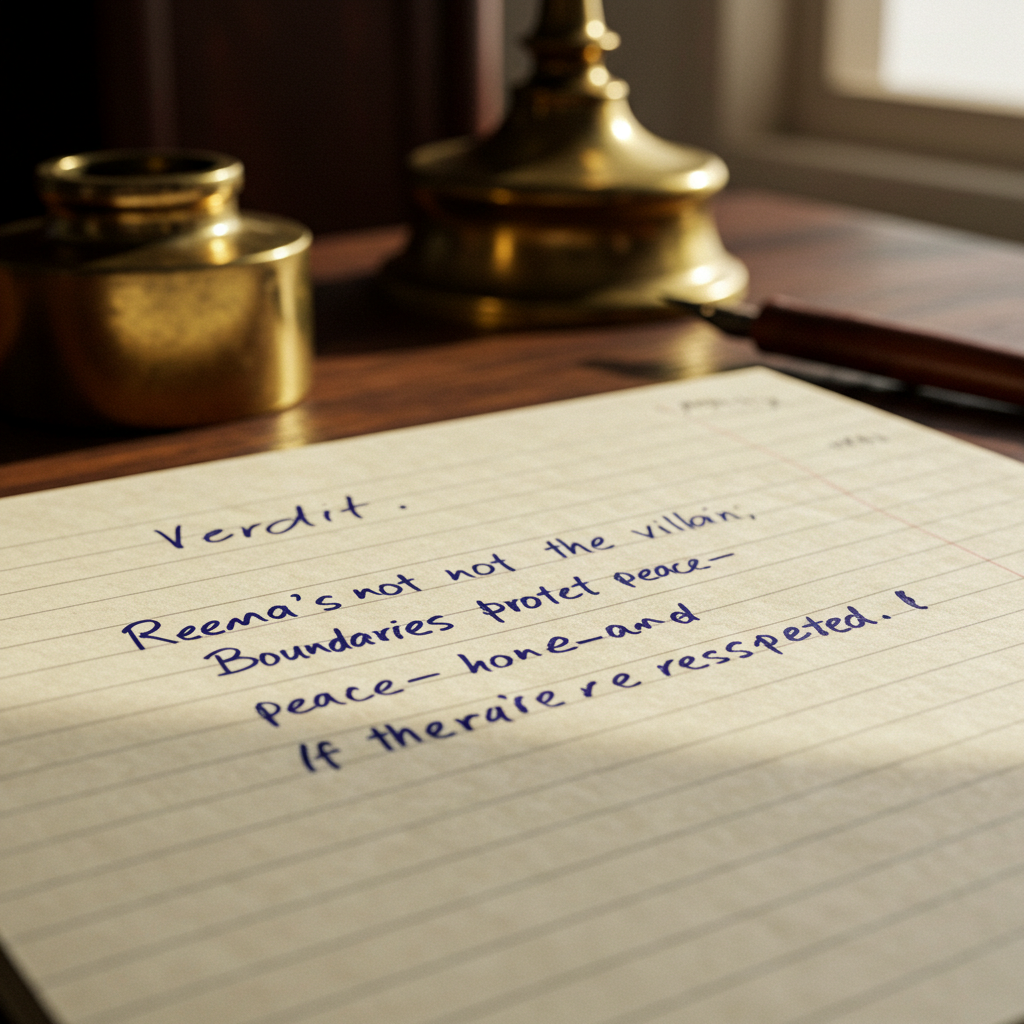 Verdit.
Reema's not not the villain;
Boundaries protet peace—
peace— hone—and
If thera're re resspeted.